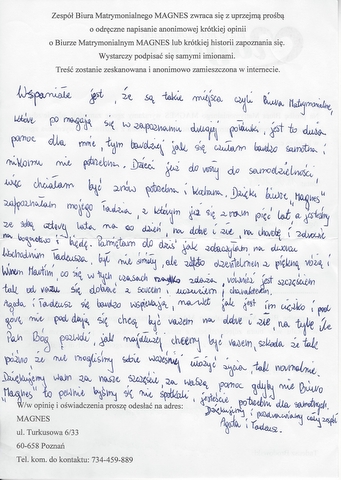 Zespół Biura Matrymonialnego MAGNES zwraca się z uprzejmą prośbą
o odręczne napisanie anonimowej krótkiej opinii
o Biurze Matrymonialnym MAGNES lub krótkiej historii zapoznania się.
Wystarczy podpisać się samymi imionami.
Treść zostanie zeskanowana i anonimowo zamieszczona w internecie.
Wspaniałe jest, że są takie miejsca czyli Biura Matrymonialne,
które po magają się w zapoznaniu drugiej połówki, jest to duża
pomoc dla mnie, tym bardziej jak się czułam bardzo samotna i
nikomu nie potrzebna. Dzieci już do rosły do samodzielności,
więc chciałam być znów potrzebna i kochana. Dzięki biurze "Magnes"
zapoznałam mojego Tadzia, z którym już się z nam pięć lat a jesteśmy
ze sobą cztery lata na co dzień, na dobre i złe, na chorobę i zdrowie
na bogactwo i biedę. Pamiętam do dziś jak zobaczyłam na dworcu
Wschodnim Tadeusza, był nie śmiały, ale szybko z piękną różą i
Winem Martini co się w tych czasach rzadko zdarza, również jest szczęściem
tak od razu się dobrać z sercem, i charakterem.
Agata i Tadeusz się bardzo wspierają, nawet jak jest im ciężko i pod
górę nie pod dają się chcą być razem na dobre i złe, na tyle ile
Pan Bóg pozwoli, jak najdłużej chcemy być razem, szkoda że tak
późno że nie mogliśmy sobie wcześniej ułożyć życia tak normalnie.
Dziękujemy wam za nasze szczęście, za waszą pomoc gdyby nie Biuro
Magnes to pewnie byśmy się nie spotkali, jesteście potrzebni dla samotnych.
Dziękujemy i pozdrawiamy cały zespół
Agata i Tadeusz.
W/w opinię i oświadczenia proszę odesłać na adres:
MAGNES
ul. Turkusowa 6/33
60-658 Poznań
Tel. kom. do kontaktu: 734-459-889